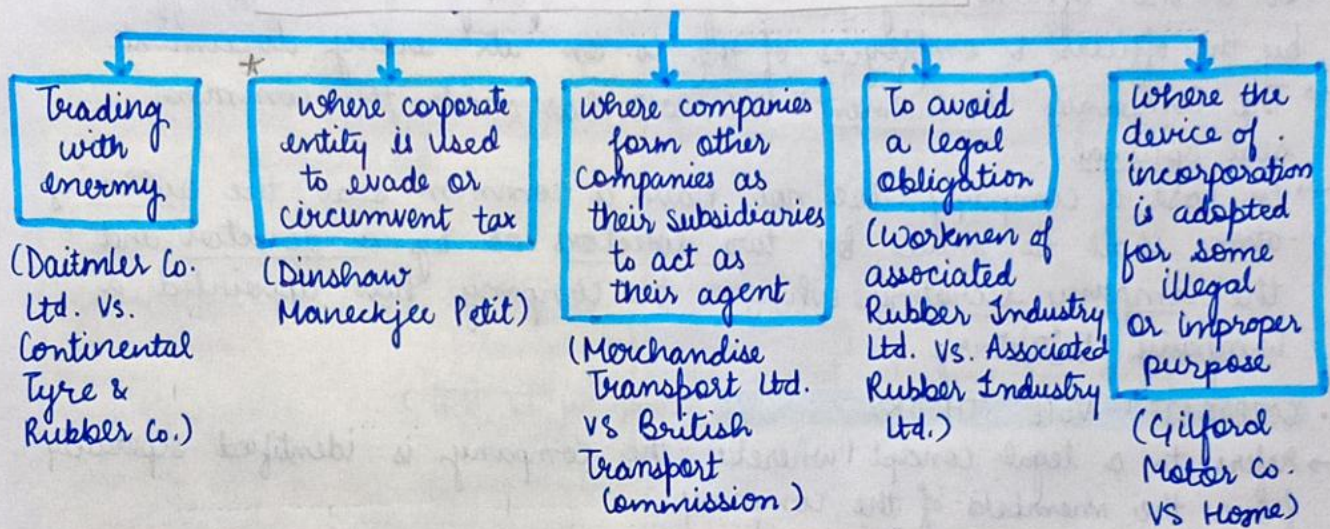 Trading
with
enermy
(Daitmler Co.
Ltd. Vs.
Continental
Tyre &
Rubber Co.)
*
where corporate
entity is used
to evade or
circumvent tax
(Dinshaw
Maneckjee Petit)
Where companies
form other
companies as
their subsidiaries
to act as
their agent
(Merchandise
Transport Ltd.
VS British
Transport
Commission)
To avoid
a legal
obligation
(Workmen of
associated
Rubber Industry
Ltd. VS. Associated
Rubber Industry
Ltd.)
Where the
device of
incorporation
is adopted
for some
illegal
or improper
purpose
(Gilford
Motor Co.
VS Home)